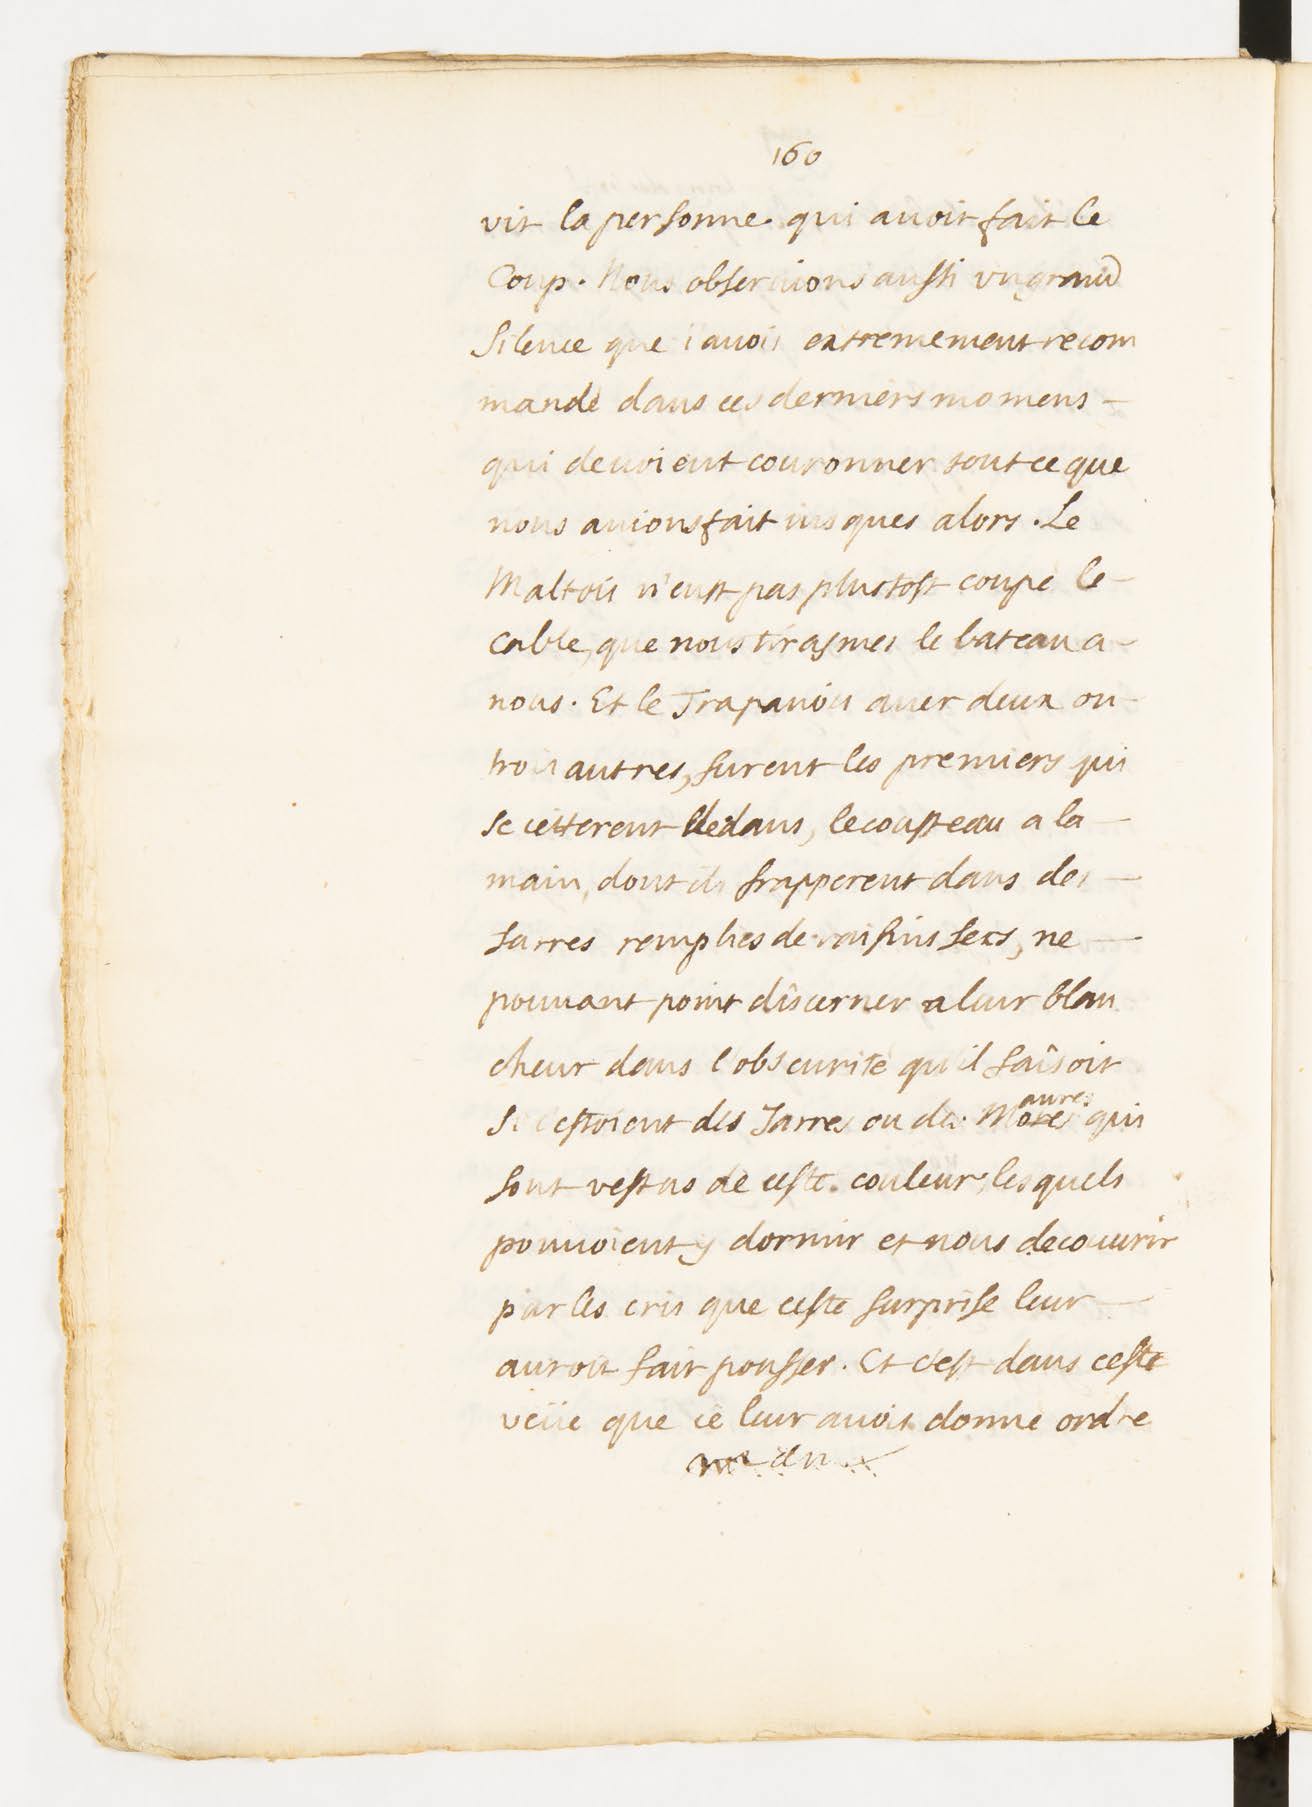 160
vit la personne qui auoit fait le
Coup. Nous obseruions aussi vn grand
Silence que i'auois extremement recom
mandé dans ces derniers momens –
qui deuoient couronner tout ce que
nous auions fait iusques alors. Le
Maltois n'eust pas plustost coupé le –
cable, que nous tirasmes le bateau a –
nous. Et le Trapanois auec deux ou –
trois autres, furent les premiers qui
se ietterent dedans, le cousteau a la –
main, dont ils frapperent dans des –
Jarres remplies de raisins secs, ne –
pouuant point discerner a leur blan
cheur dans l'obscurité qu'il faisoit
si c'estoient des Jarres ou des Maures qui
sont vestus de ceste couleur, lesquels
pouuoient y dormir et nous decouurir
par les cris que ceste surprise leur –
auroit fait pousser. Et c'est dans ceste
veüe que ie leur auois donné ordre